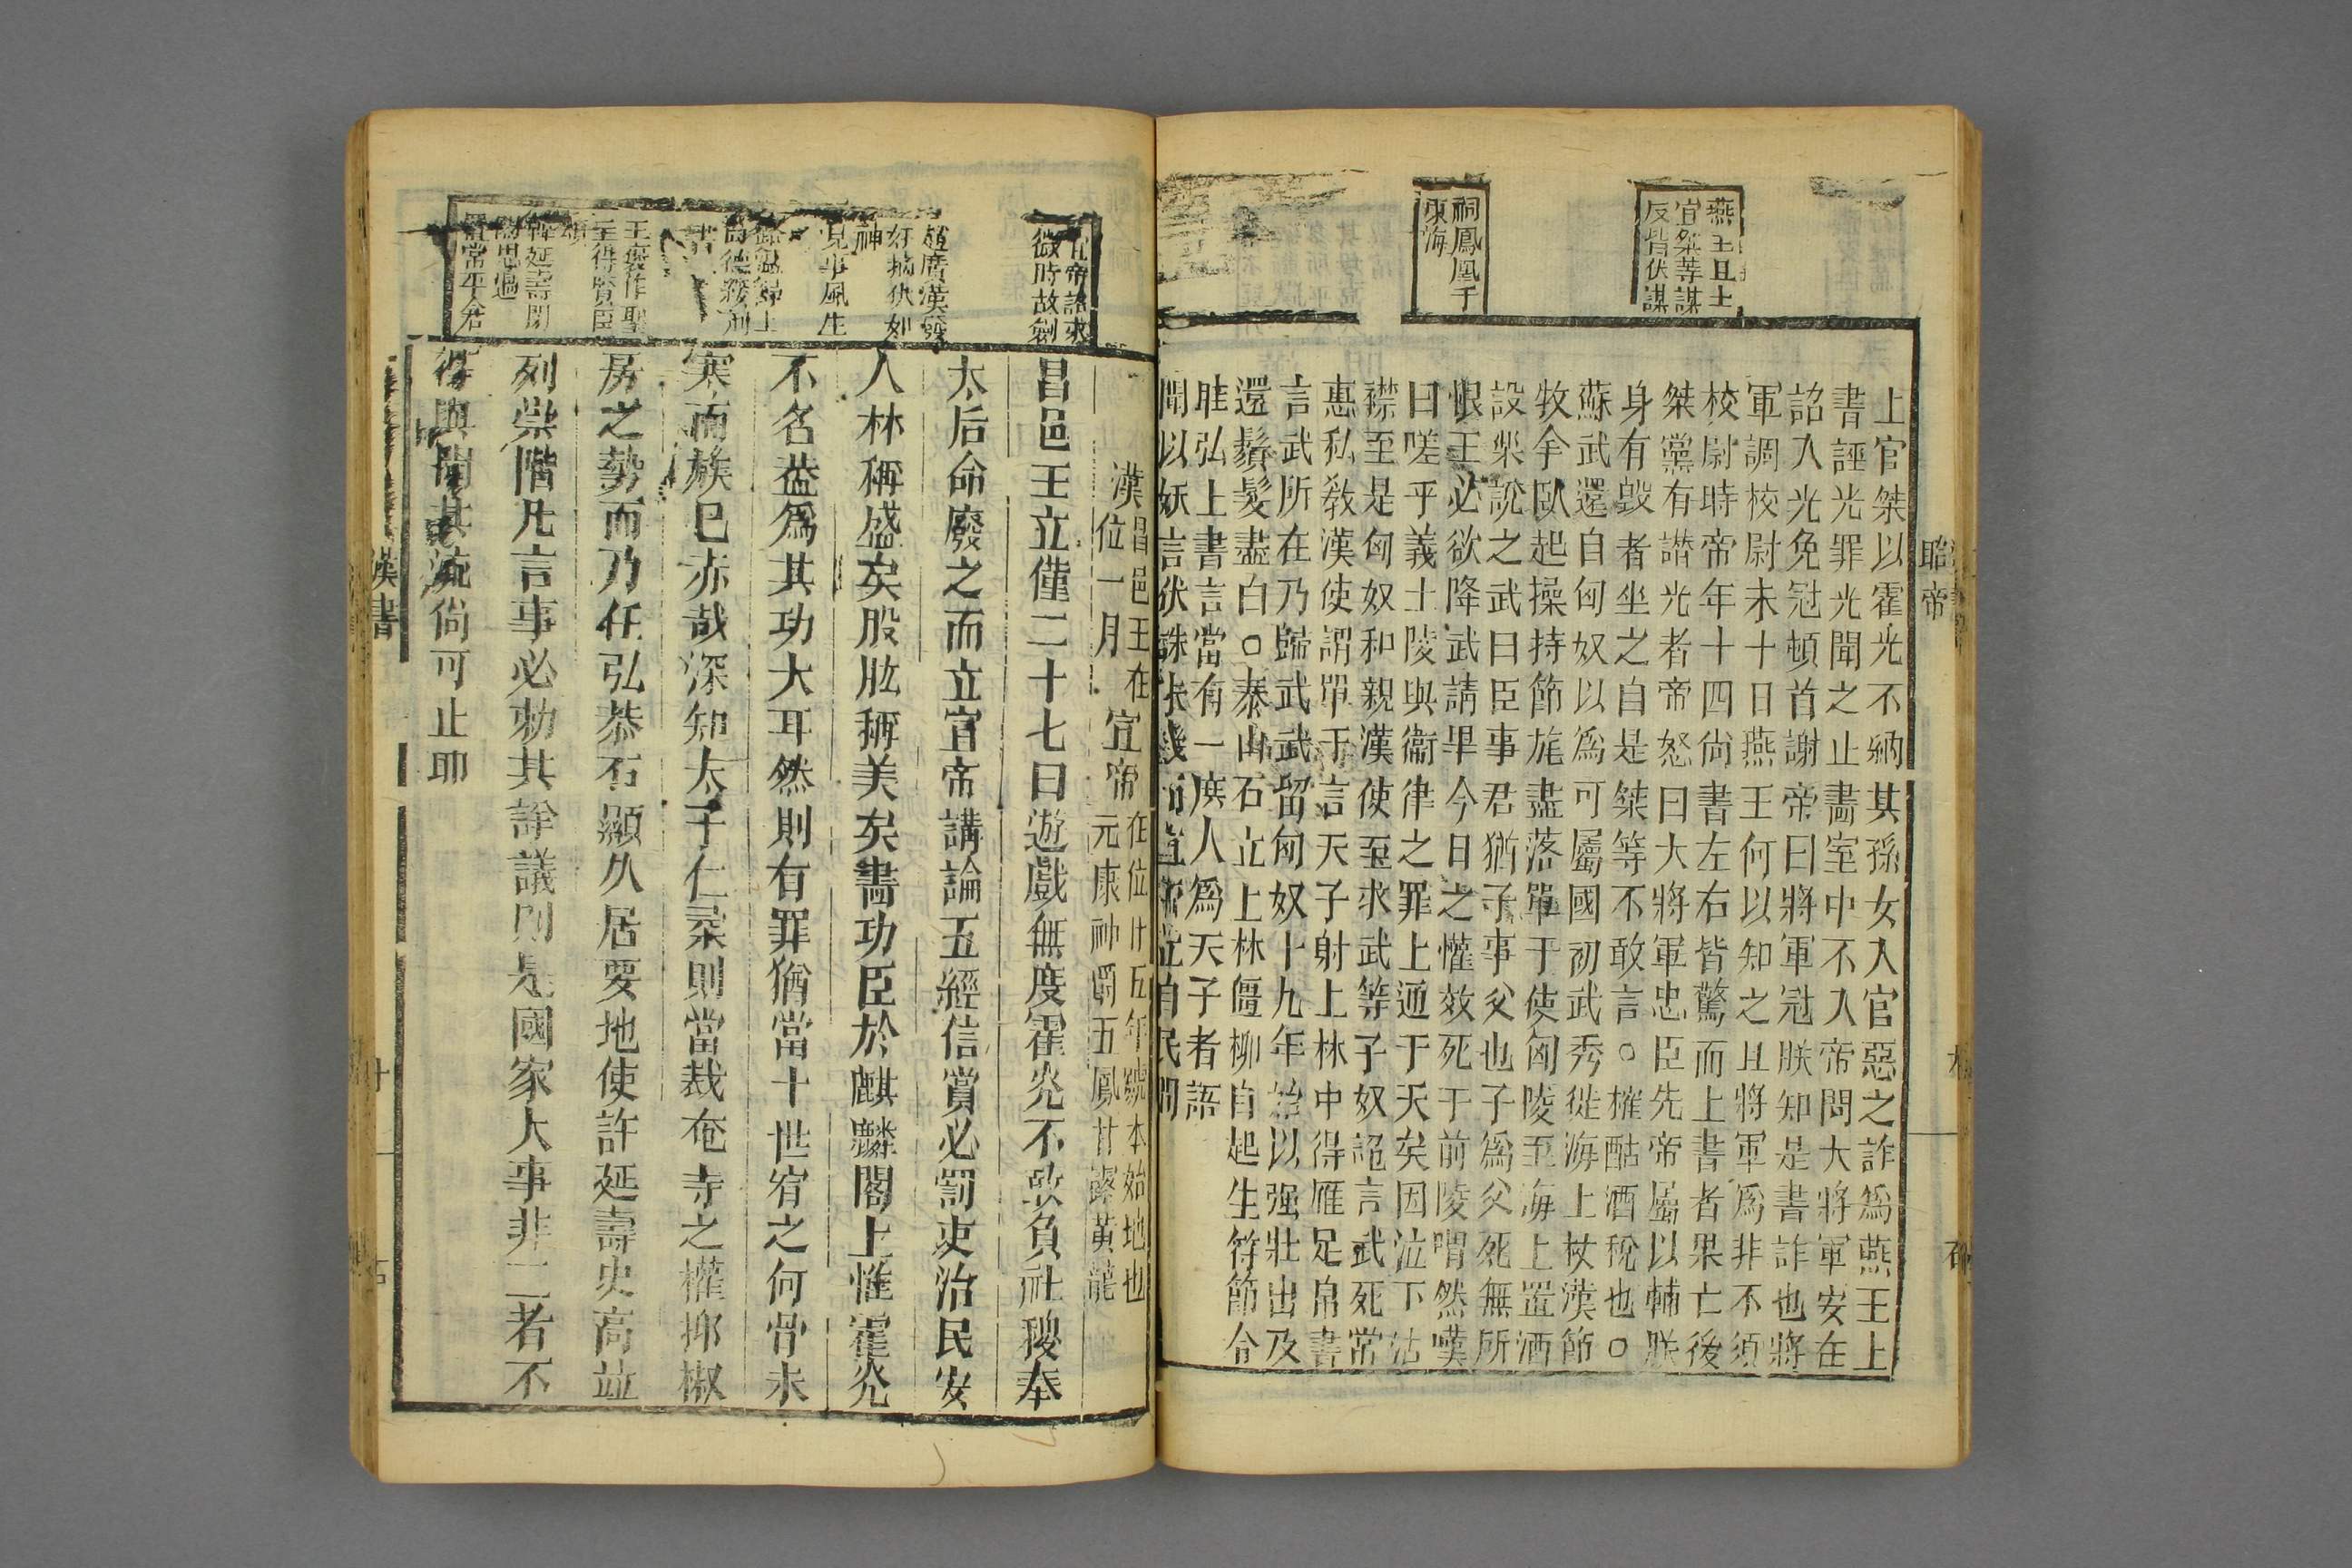 昭帝
燕王旦上
官桀等謀
反皆伏誅
祠鳳凰于
東海
上官桀以霍光不納其孫女入官惡之詐爲燕王上
書誣光罪光聞之止畵室中不入帝問大將軍安在
詔入光免冠頓首謝帝曰將軍冠朕知是書詐也將
軍調校尉未十日燕王何以知之且將軍爲非不須
校尉時帝年十四尙書左右皆驚而上書者果亡後
桀黨有譖光者帝怒曰大將軍忠臣先帝屬以輔朕
身有毀者坐之自是桀等不敢言○榷酤酒稅也○
蘇武還自匈奴以爲可屬國初武秀徙海上杖漢節
牧羊臥起操持節旄盡落單于使陵至海上置酒
設樂說之武曰臣事君猶子事父也子爲父死無所
恨王必欲降武請畢今日之懽效死于前陵喟然嘆
曰嗟乎義士陵與衞律之罪上通于天矣因泣下沾
襟至是匈奴和親漢使至求武等子奴詭言武死常
惠私敎漢使謂單于言天子射上林中得雁足帛書
言武所在乃歸武武留匈奴十九年始以强壯出及
還鬚髮盡白○泰山石立上林僵柳自起生符節令
眭弘上書言當有一庻人爲天子者語
聞以妖言伏誅
漢昌邑王在
位一月
宣帝在位廿五年號本始地也
元康神爵五鳳甘露黃龍
昌邑王立僅二十七日遊戲無度霍光不敢負社稷奉
太后命廢之而立宣帝講論五經信賞必罰吏治民安
人林稱盛矣股肱稱美矣畵功臣於麒麟閣上惟霍光
不名葢爲其功大耳然則有罪猶當十世宥之何骨未
寒而族已赤哉深知太子仁柔則當裁奄寺之權抑椒
房之勢而乃任弘恭石顯久居要地使許延壽史高竝
列崇階凡言事必勑其詮議則是國家大事非二者不
得與聞其流尙可止耶
帝詔求
微時故劍
趙廣漢發
奸摘伏如
神
見事風生
路溫舒上
尚德緩刑
書
王褒作聖
主得賢臣
頌
韓延壽閉
閤思過
置常平倉
漢書